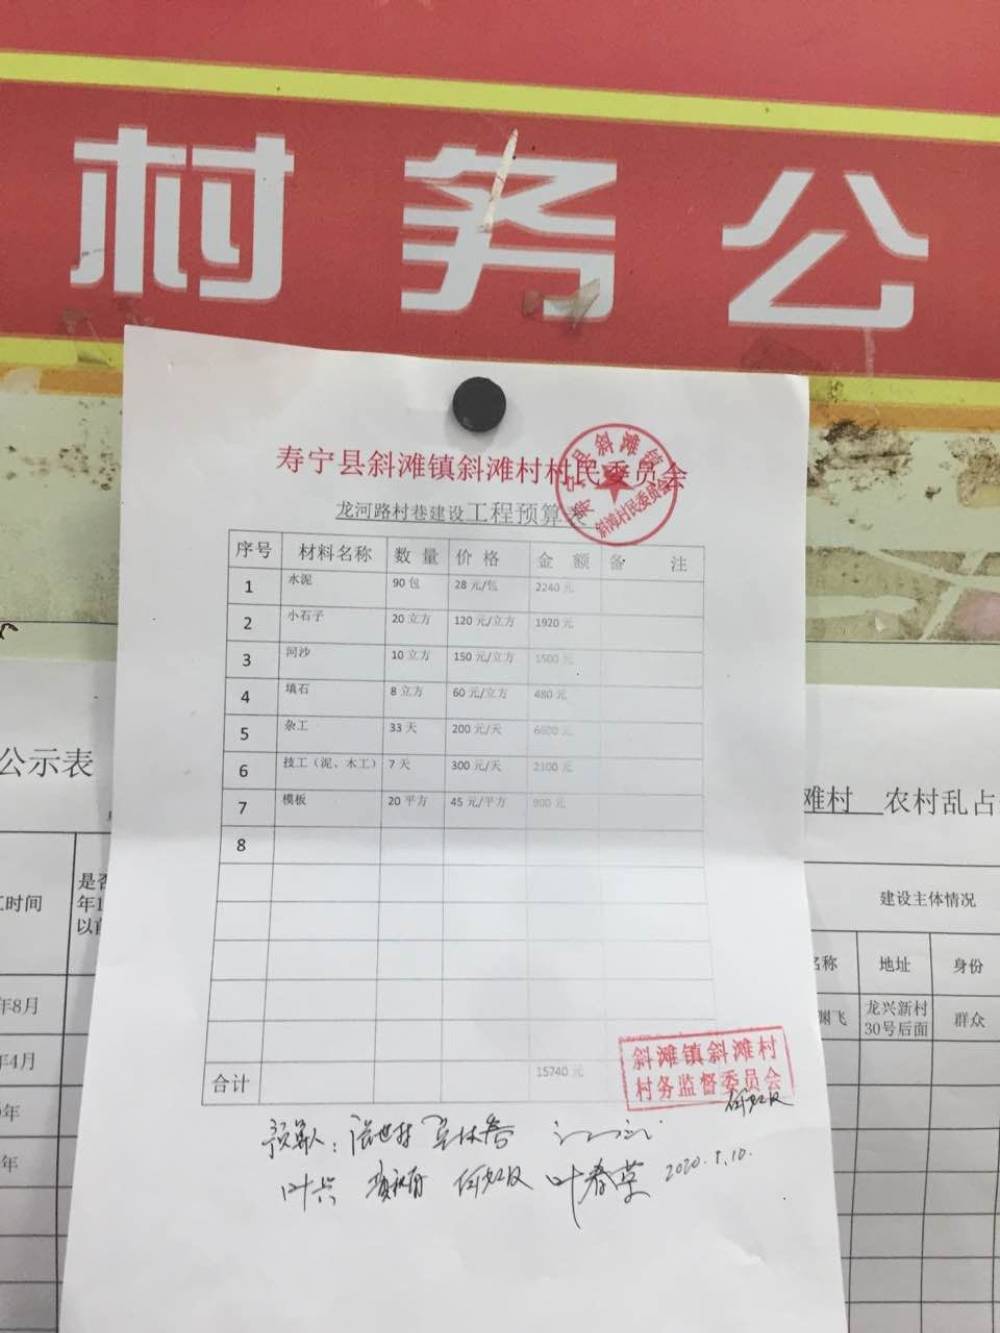 村务公
寿宁县斜滩镇斜滩村村民委员会
龙河路村巷建设工程预算表
寿宁县斜滩镇
斜滩村民委员会
序号 材料名称 数量 价格 金额 备注
1 水泥 90包 28元/包 2240元
2 小石子 20立方 120元/立方 1920元
3 河沙 10立方 150元/立方 1500元
4 填石 8立方 60元/立方 480元
5 杂工 33天 200元/天 6600元
6 技工（泥、木工） 7天 300元/天 2100元
7 模板 20平方 45元/平方 900元
8
合计 15740元
斜滩镇斜滩村
村务监督委员会
预算人：
叶春草
公示表
工时间
是否
年1
以前
年8月
年4月
年
年
滩村 农村乱占
建设主体情况
名称 地址 身份
飞 龙兴新村 群众
30号后面